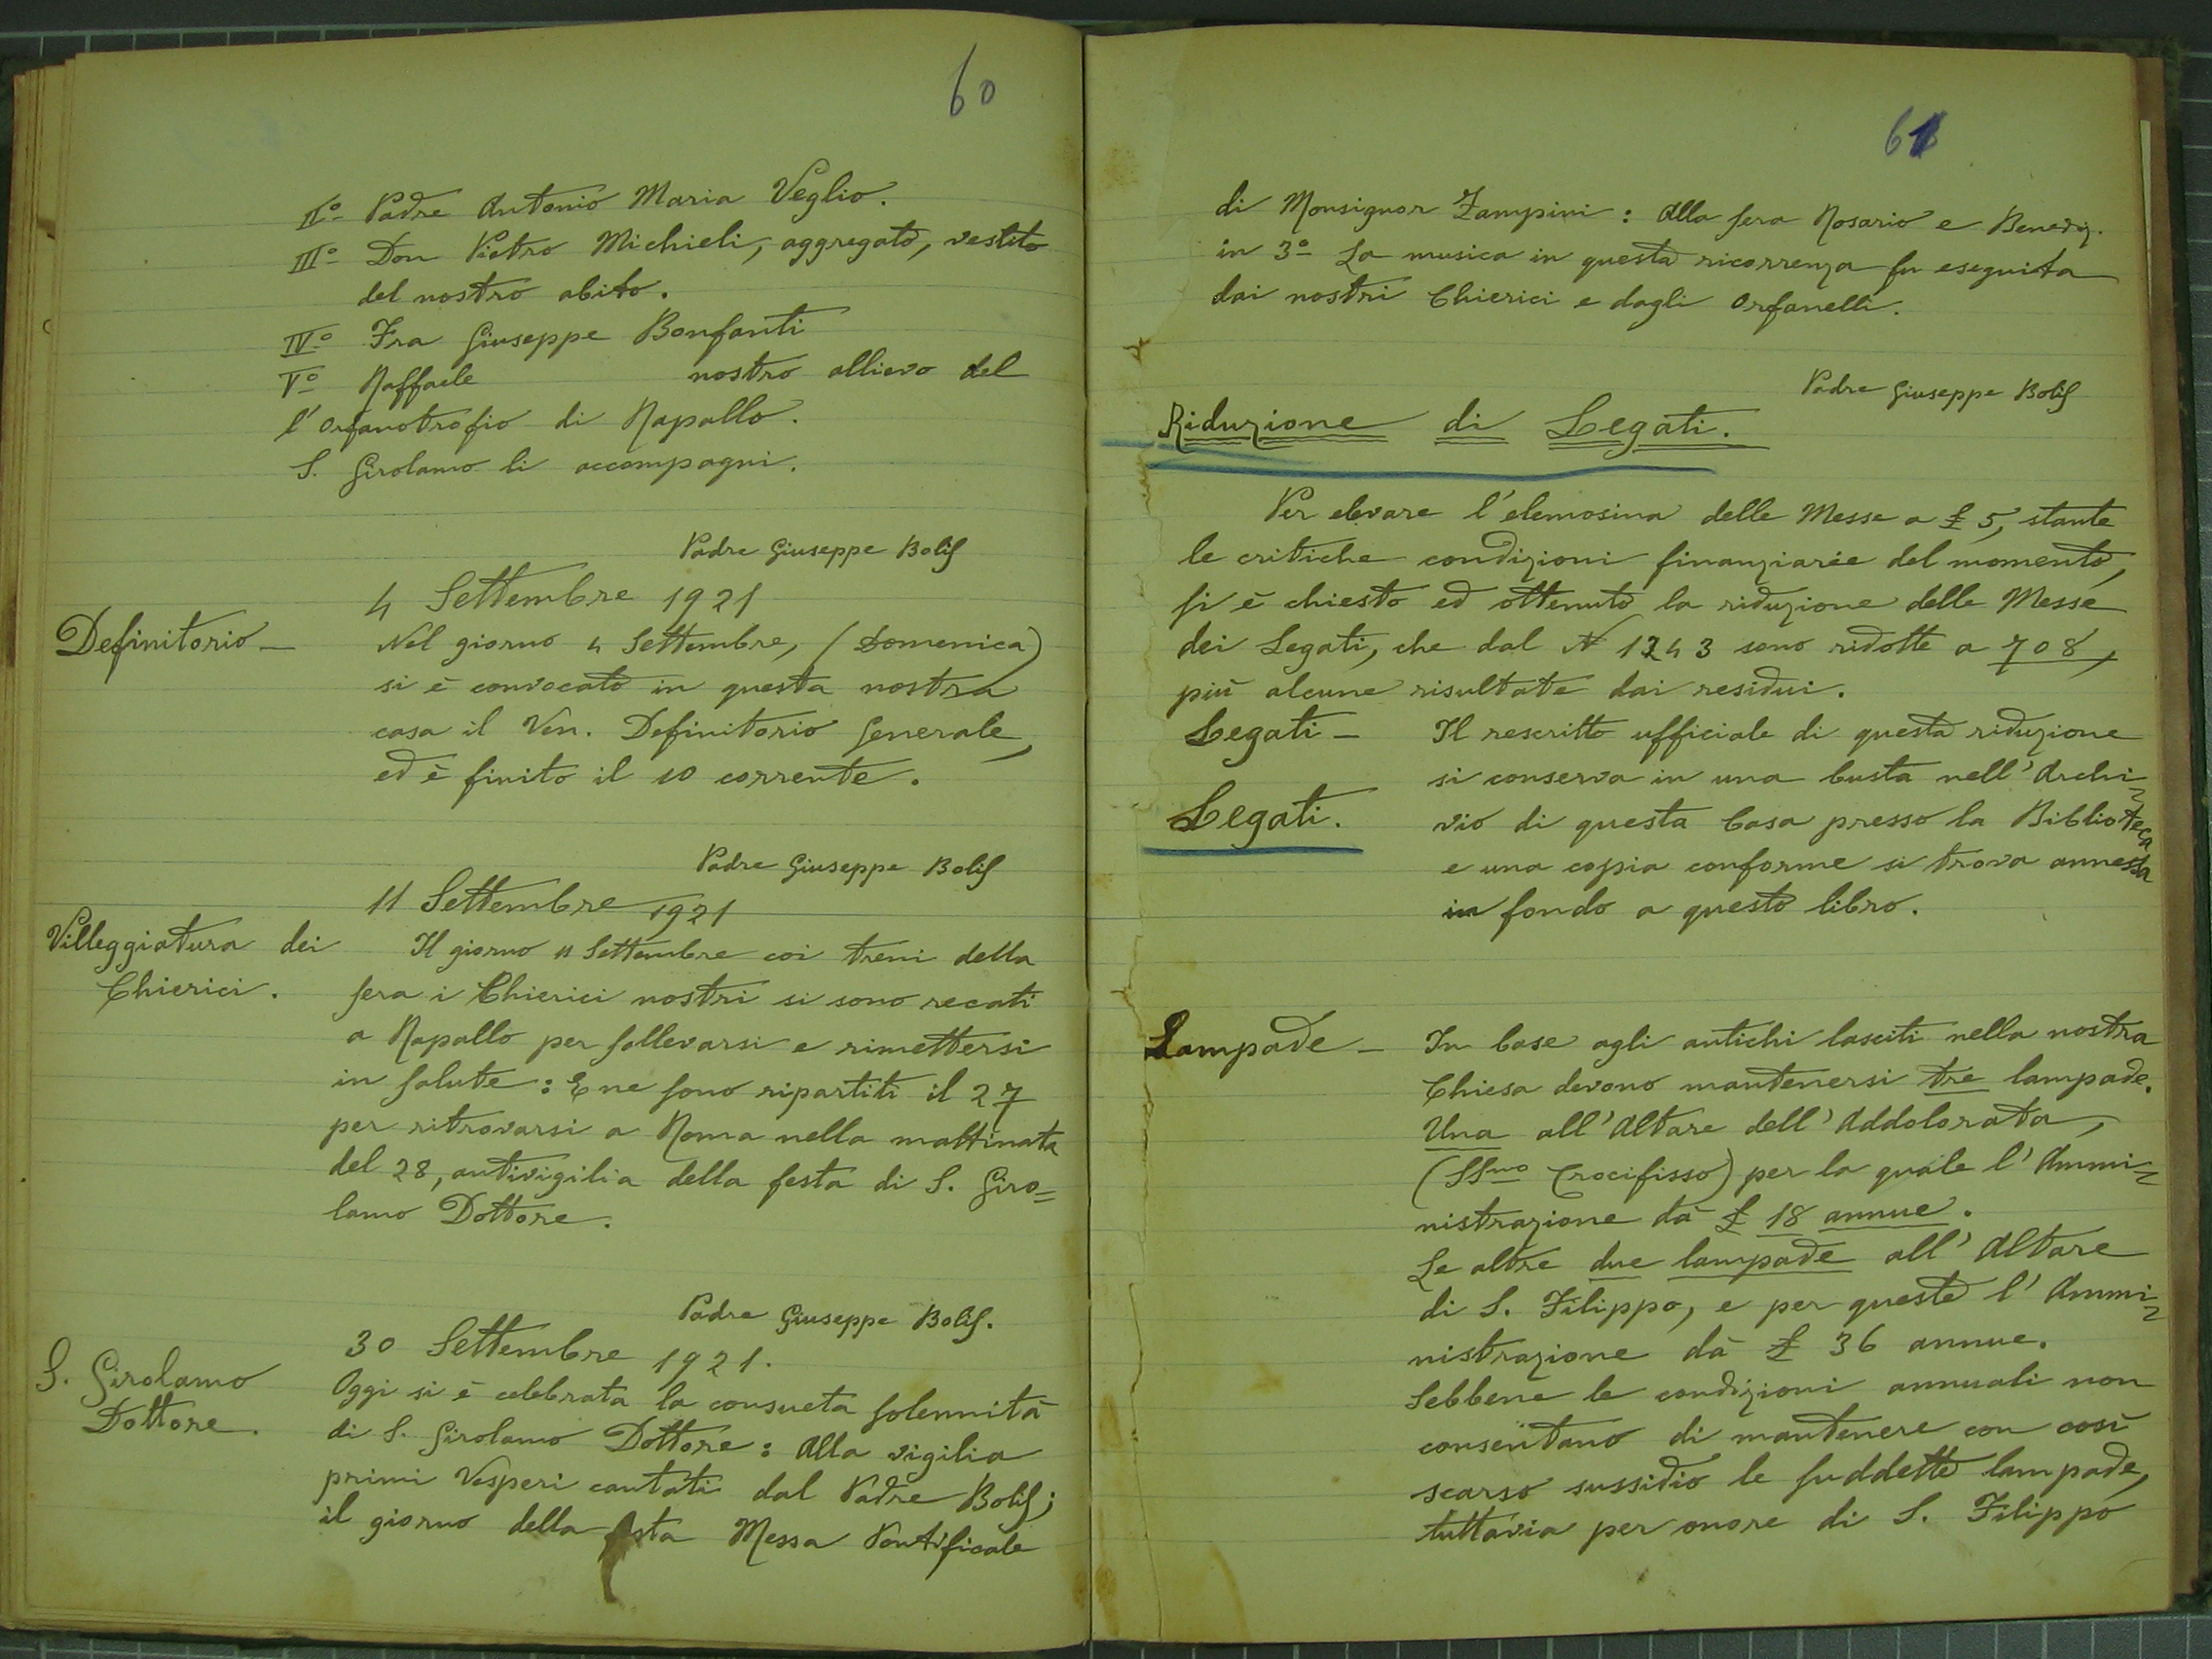 60
IIº Padre Antonio Maria Veglio.
IIIº Don Pietro Michieli, aggregato, vestito
del nostro abito.
IVº Fra Giuseppe Bonfanti
Vº Raffaele nostro allievo del
l'Orfanotrofio di Rapallo.
S. Girolamo li accompagni.
Padre Giuseppe Bolis
4 Settembre 1921
Definitorio –
Nel giorno 4 Settembre, (Domenica)
si è convocato in questa nostra
casa il Ven. Definitorio Generale,
ed è finito il 10 corrente.
Padre Giuseppe Bolis
11 Settembre 1921
Villeggiatura dei
Chierici.
Il giorno 11 Settembre coi treni della
sera i Chierici nostri si sono recati
a Rapallo per sollevarsi e rimettersi
in salute: E ne sono ripartiti il 27
per ritrovarsi a Roma nella mattinata
del 28, antivigilia della festa di S. Giro=
lamo Dottore.
Padre Giuseppe Bolis.
30 Settembre 1921.
S. Girolamo
Dottore.
Oggi si è celebrata la consueta solennità
di S. Girolamo Dottore: Alla vigilia
primi Vesperi cantati dal Padre Bolis;
il giorno della festa Messa Pontificale
61
di Monsignor Zampini: Alla sera Rosario e Benediz.
in 3º La musica in questa ricorrenza fu eseguita
dai nostri Chierici e dagli Orfanelli.
Padre Giuseppe Bolis
Riduzione di Legati.
Per elevare l'elemosina delle Messe a £ 5, stante
le critiche condizioni finanziarie del momento,
si è chiesto ed ottenuto la riduzione delle Messe
dei Legati, che dal N 1243 sono ridotte a 708,
più alcune risultate dai residui.
Legati –
Il rescritto ufficiale di questa riduzione
si conserva in una busta nell'Archi=
Legati.
vio di questa Casa presso la Biblioteca
e una copia conforme si trova annessa
in fondo a questo libro.
Lampade –
In base agli antichi lasciti nella nostra
Chiesa devono mantenersi tre lampade.
Una all'Altare dell'Addolorata,
(SSmo Crocifisso) per la quale l'Ammi=
nistrazione dà £ 18 annue.
Le altre due lampade all'Altare
di S. Filippo, e per queste l'Ammi=
nistrazione dà £ 36 annue.
Sebbene le condizioni annuali non
consentano di mantenere con così
scarso sussidio le suddette lampade,
tuttavia per onore di S. Filippo